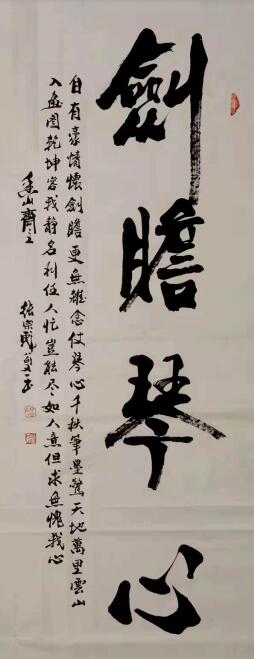 劍膽琴心
自有豪情懷劍膽更無雜念仗琴心千秋筆墨驚天地萬里雲山
入畫圖乾坤容我靜名利任人忙豈能尽如人意但求無愧我心